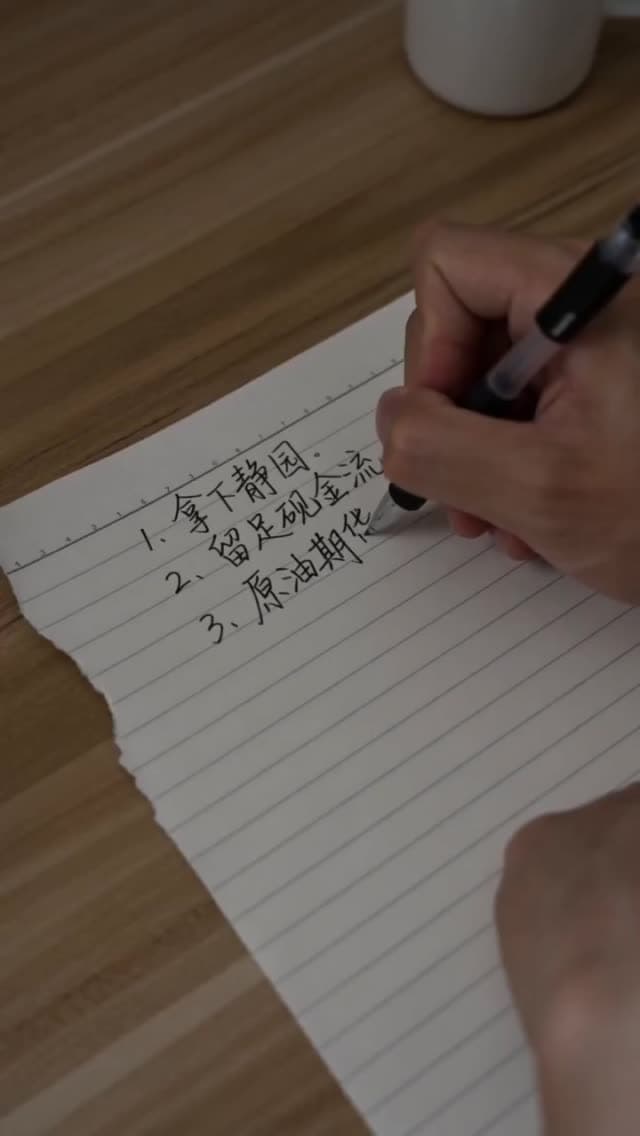 1、拿下静园.
2、留足现金流
3、原油期货